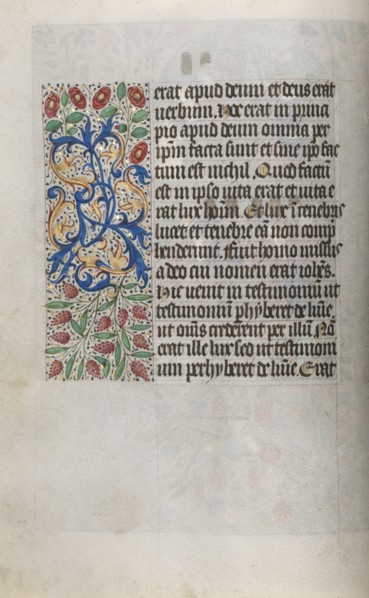 erat apud deum et deus erat
uerbum. Hoc erat in princi
pio apud deum omnia per
ipm̄ facta sunt et sine ip̄o fac
tum est nichil. Quod factū
est in ipso uita erat et uita e
rat lux hoīm. Et lux ī tenebris
lucet et tenebre eā non comp̄
henderunt. Fuit homo missus
a deo cui nomen erat ioh̄es.
Hic uenit in testimoniū ut
testimoniū phyberet de lūīe,
ut oīns crederent per illū. Nō
erat ille lux sed ut testimoni
um perhyberet de lūīe. Erat